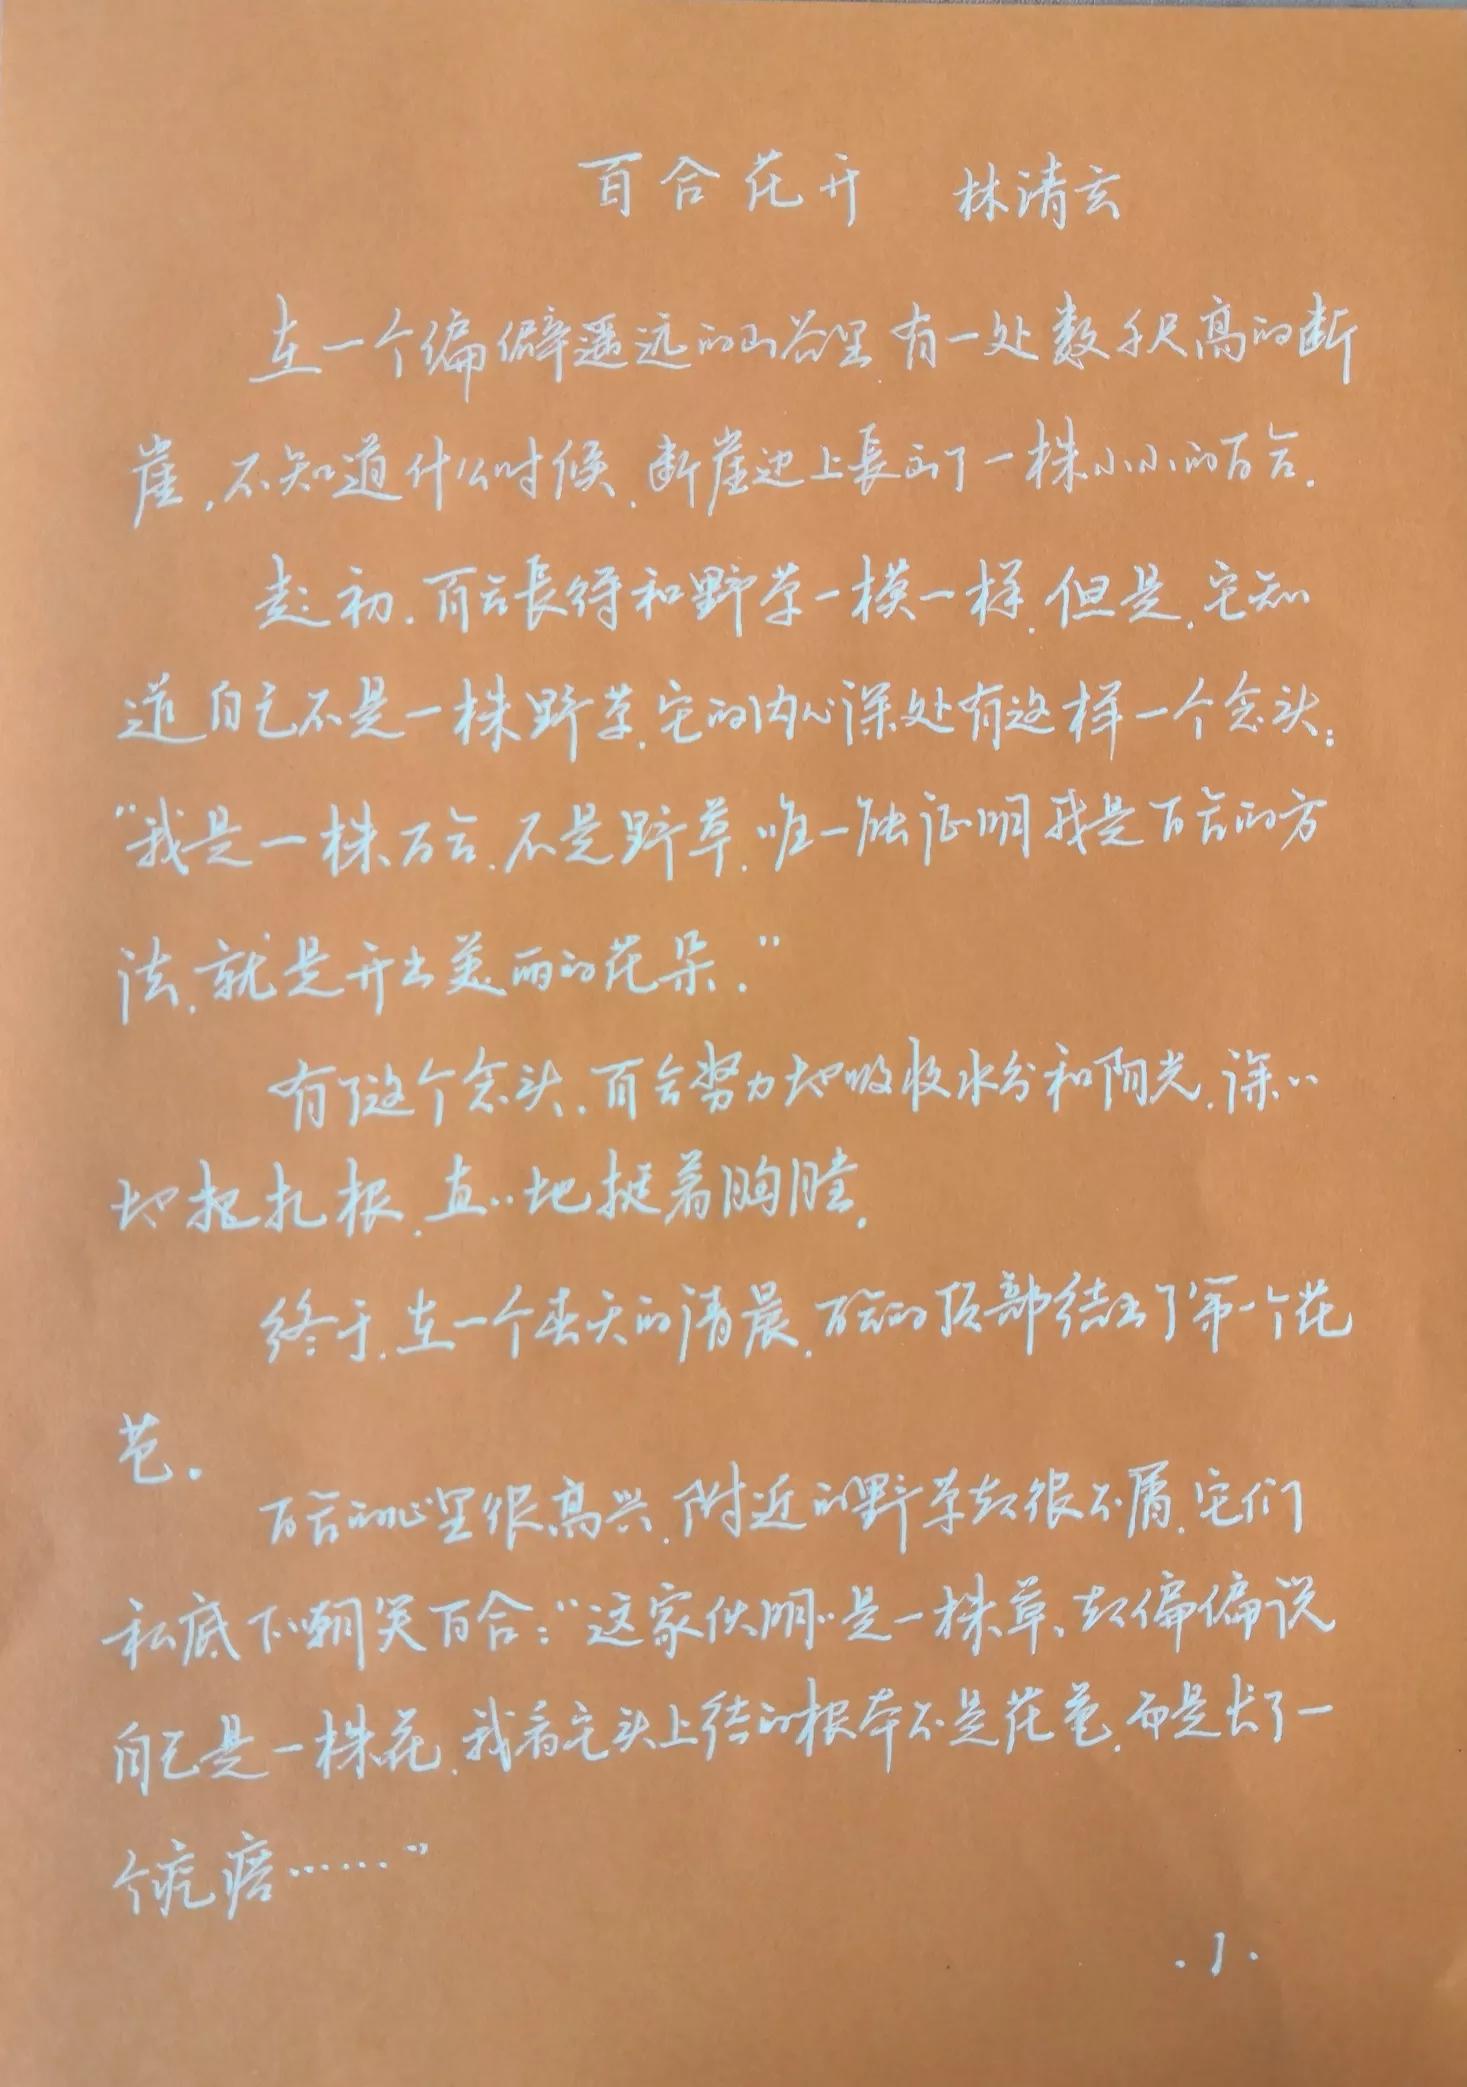 百合花开 林清玄
在一个偏僻遥远的山谷里.有一处数千尺高的断
崖,不知道什么时候.断崖边上長出了一株小小的百合.
起初.百合長得和野草一模一样.但是.它知
道自己不是一株野草.它的内心深处有这样一个念头:
“我是一株百合.不是野草.唯一能证明我是百合的方
法.就是开出美丽的花朵.”
有了这个念头.百合努力地吸收水分和阳光.深〃
地把扎根.直〃地挺着胸膛.
终于.在一个春天的清晨.百合的顶部结出了第一个花
苞.
百合的心里很高兴.附近的野草却很不屑.它们
私底下嘲笑百合:“这家伙明〃是一株草、却偏偏说
自己是一株花.我看它头上结的根本不是花苞.而是长了一
个疙瘩……”
.1.